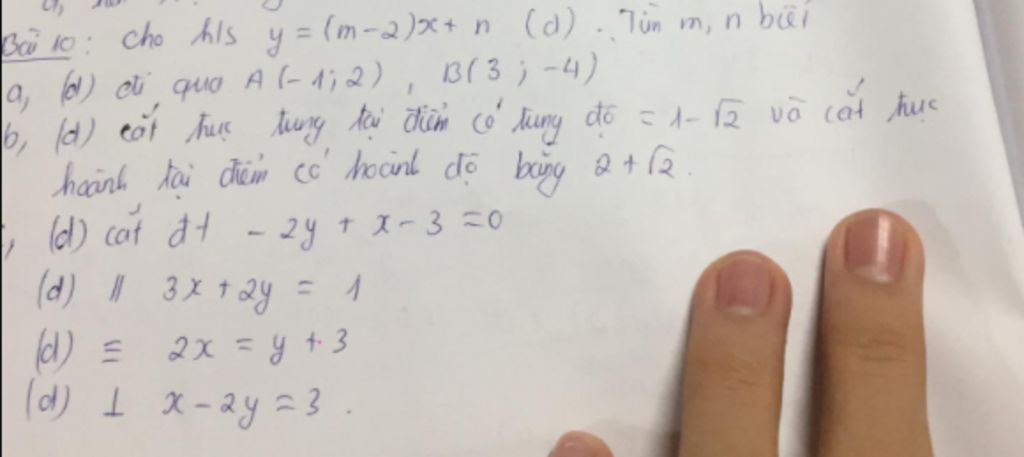 Bài 10: Cho h/s y = (m-2)x + n (d). Tìm m, n biết
a, (d) đi qua A(-1;2), B(3;-4)
b, (d) cắt trục tung tại điểm có tung độ = 1-√2 và cắt trục
hoành tại điểm có hoành độ bằng 2+√2.
, (d) cắt đt -2y + x - 3 = 0
(d) // 3x + 2y = 1
(d) ≡ 2x = y + 3
(d) ⊥ x - 2y = 3.